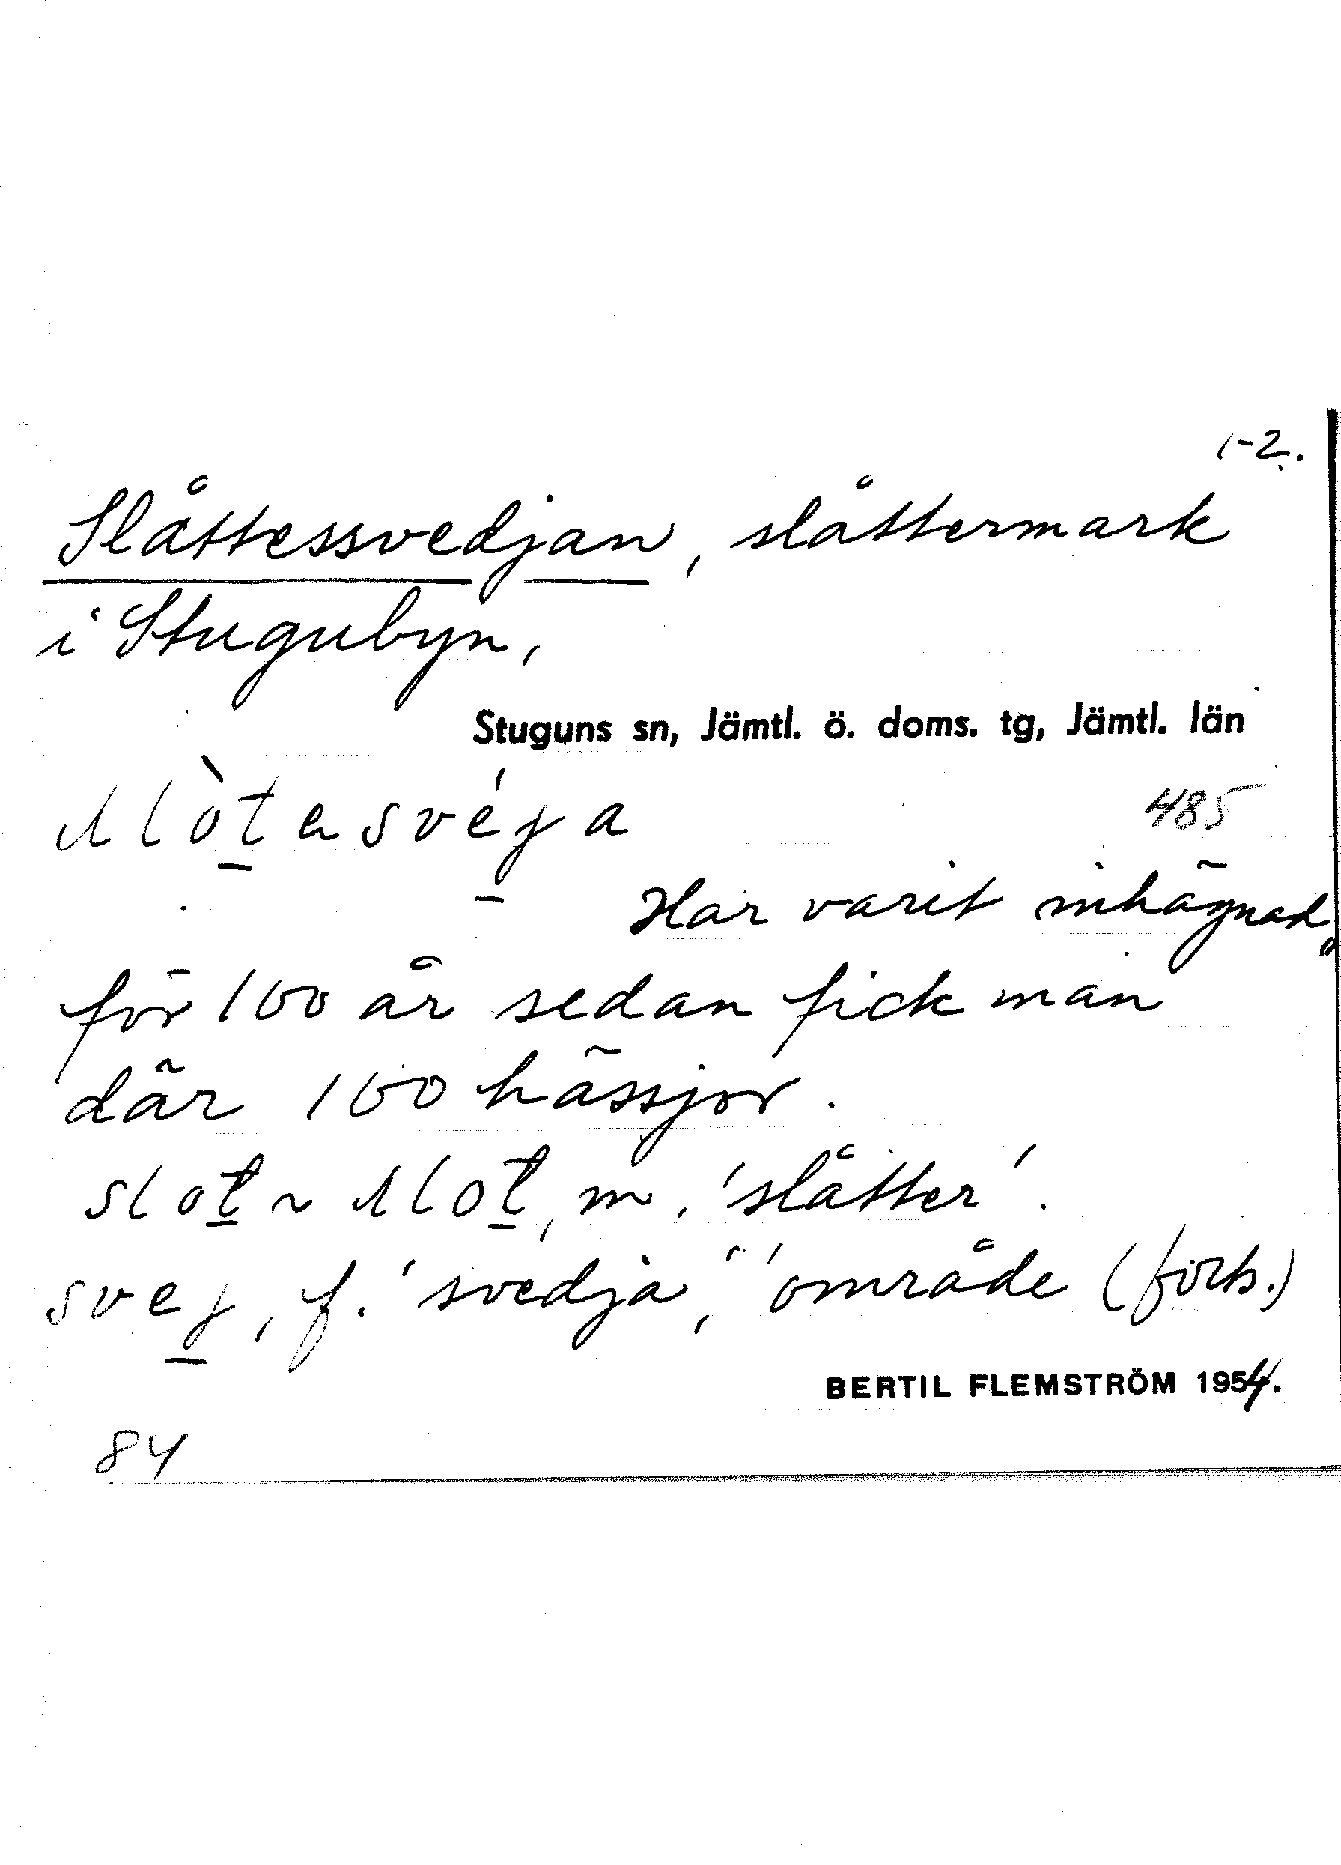 1-2.
Slåttessvedjan, slåttermark
i Stugubyn,
Stuguns sn, Jämtl. ö. doms. tg, Jämtl. län
slòtesvéja
485
Har varit inhägnad,
för 100 år sedan fick man
där 100 hässjor.
slot ~ slot, m. 'slåtter'.
svej, f. 'svedja', 'område (forts.)
BERTIL FLEMSTRÖM 1954.
84